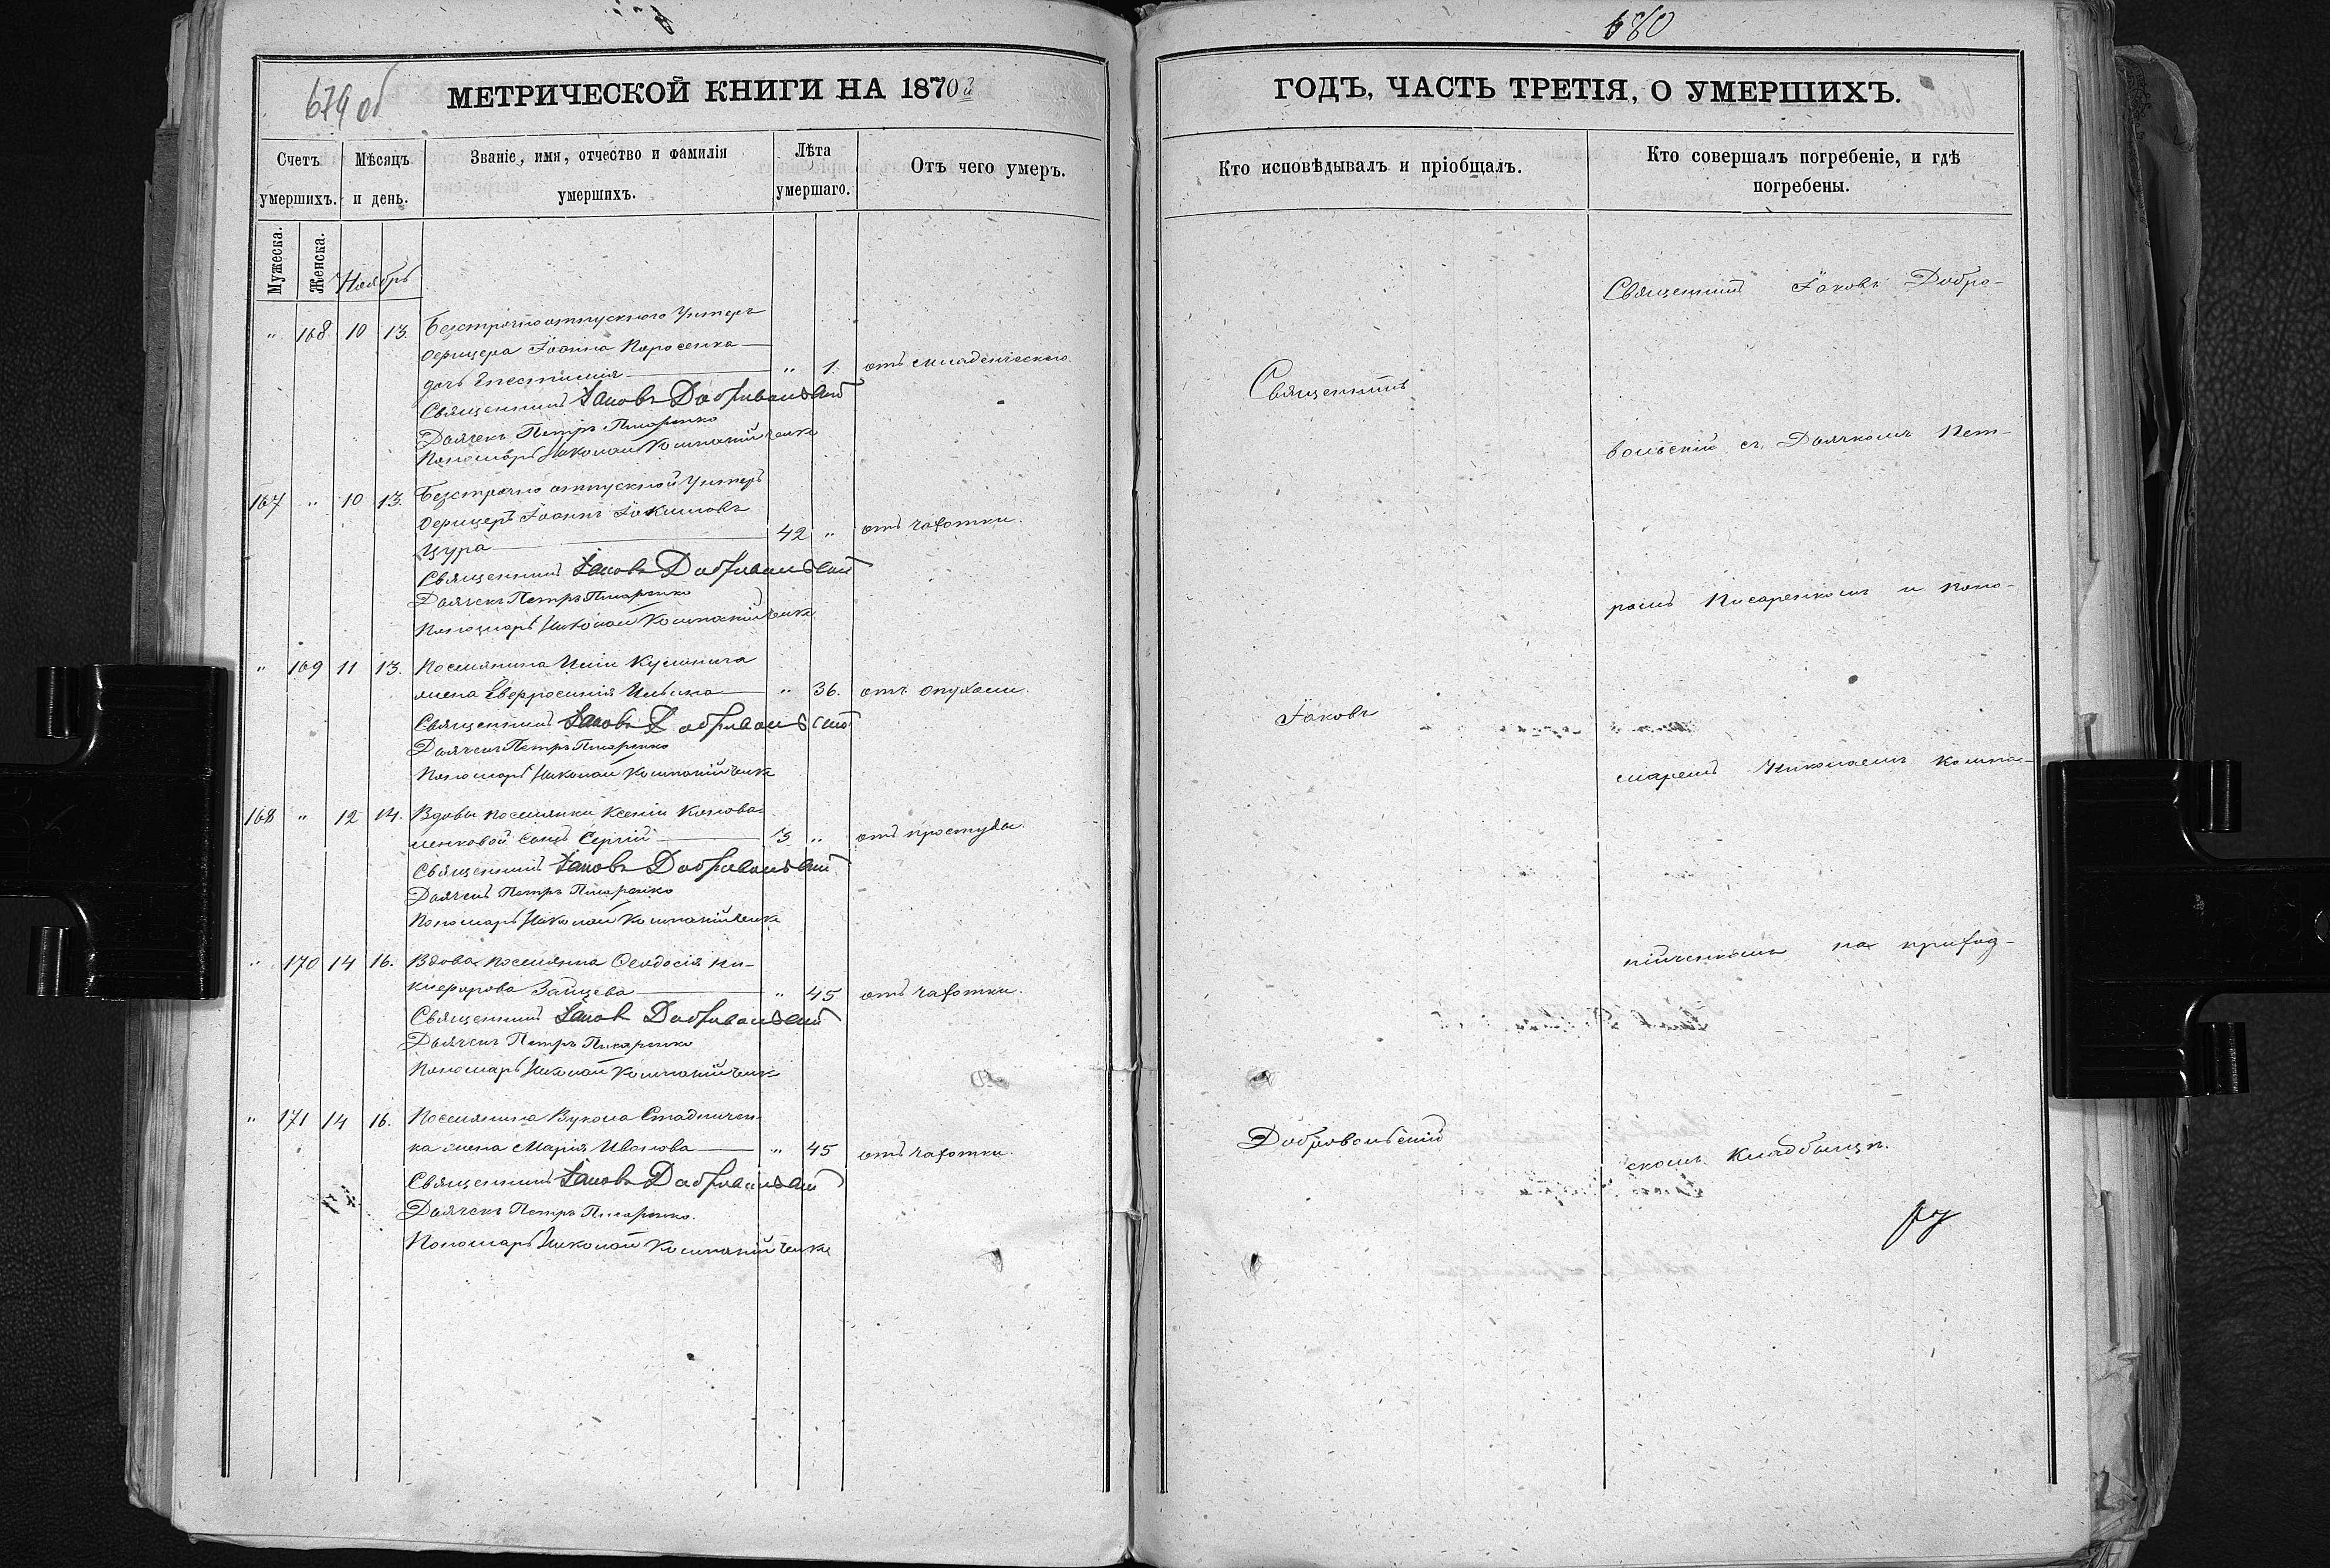 679 об
МЕТРИЧЕСКОЙ КНИГИ НА 1870й
Счетъ умершихъ.
Мѣсяцъ и день.
Званіе, имя, отчество и фамилія умершихъ.
Лѣта умершаго.
Отъ чего умеръ.
Мужеска.
Женска.
Ноябрь
" 168 10 13. Безсрочноотпускного Унтеръ
Офицера Іоанна Поросенка
дочь " 1. отъ младенческаго.
Священникъ Іаковъ Добровольскій
Дьячекъ Петръ Писаренко
Пономарь Николай Компанійченко
167 " 10 13. Безсрочно отпускной Унтеръ
Офицеръ Іоаннъ Іакимовъ
Цура 42 " отъ чахотки.
Священникъ Іаковъ Добровольскій
Дьячекъ Петръ Писаренко
Пономарь Николай Компанійченко
" 169 11 13. Поселянина
жена Евфросинія Ильина " 36. отъ опухоли.
Священникъ Іаковъ Добровольскій
Дьячекъ Петръ Писаренко
Пономарь Николай Компанійченко
168 " 12 14. Вдовы поселянки Ксеніи Конова-
ленковой сынъ Сергій 3 " отъ простуды.
Священникъ Іаковъ Добровольскій
Дьячекъ Петръ Писаренко
Пономарь Николай Компанійченко
" 170 14 16. Вдова поселянка Ѳеодосія Ни-
кифорова Зайцева " 45 отъ чахотки.
Священникъ Іаковъ Добровольскій
Дьячекъ Петръ Писаренко
Пономарь Николай Компанійченко
" 171 14 16. Поселянина Вукола Стадничен-
ка жена Марія Иванова " 45 отъ чахотки.
Священникъ Іаковъ Добровольскій
Дьячекъ Петръ Писаренко.
Пономарь Николай Компанійченко
680
ГОДЪ, ЧАСТЬ ТРЕТІЯ, О УМЕРШИХЪ.
Кто исповѣдывалъ и пріобщалъ.
Кто совершалъ погребеніе, и гдѣ
погребены.
Священникъ
Іаковъ
Добровольскій
Священникъ Іаковъ Добро-
вольскій съ Дьячкомъ Пет-
ромъ Писаренкомъ и поно-
маремъ Николаемъ Компа-
нійченкомъ на приход-
скомъ кладбищѣ.